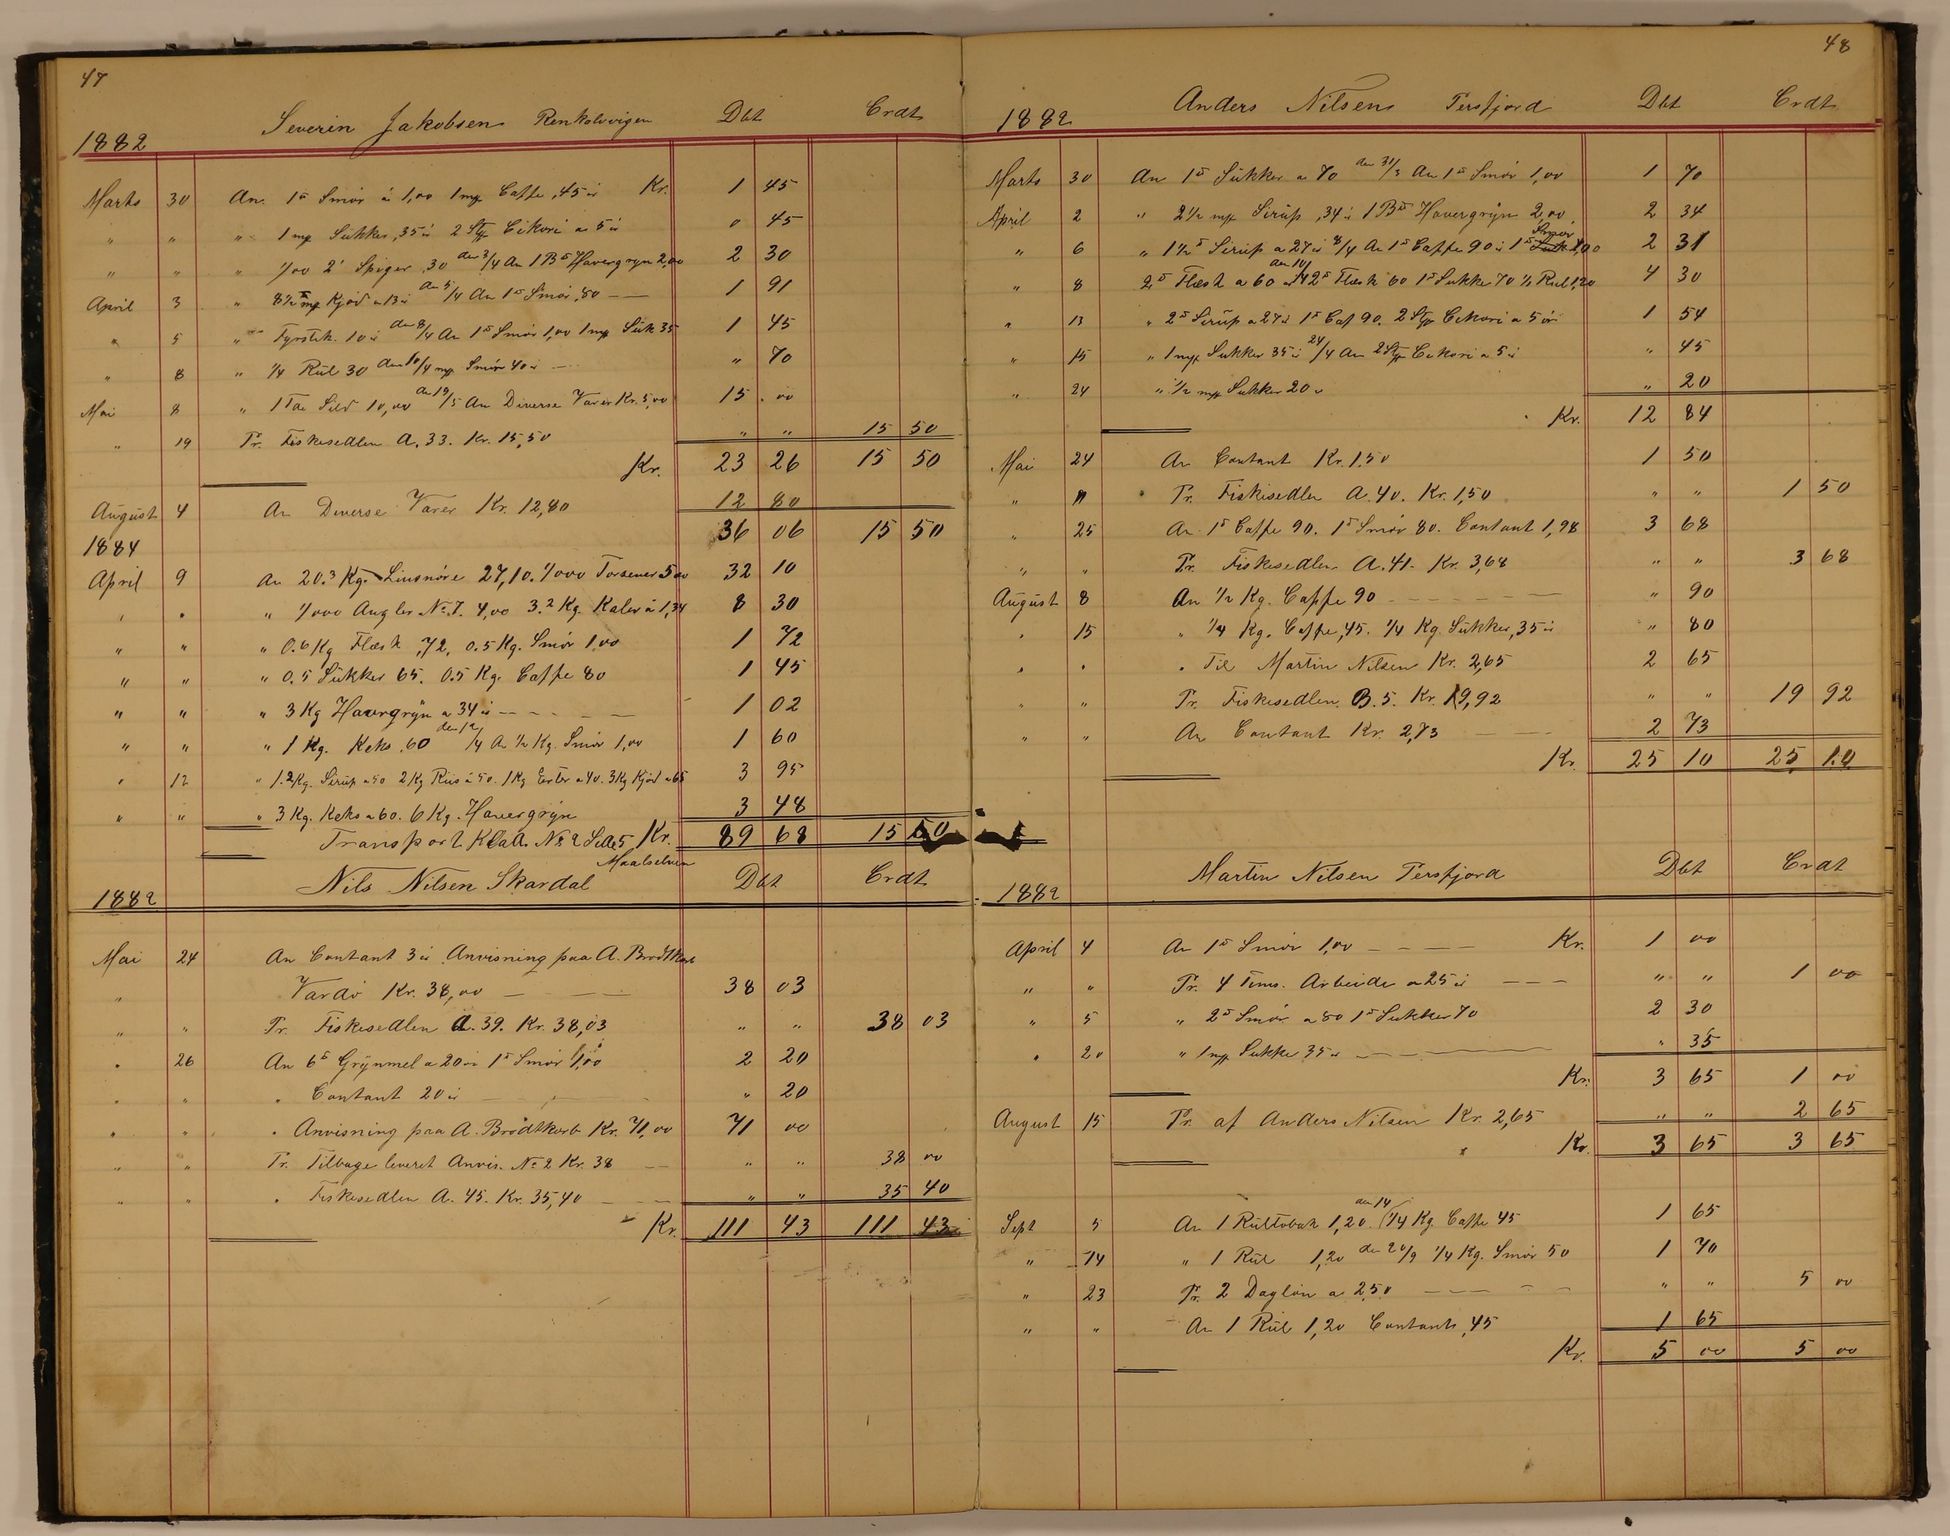 47
1882 Severin Jakobsen Renkolvvigen Dbt Crdt
Marts 30 An. 1 ℔ Smör á 1,00 1 mrk Caffe ,45 ö Kr. 1 45
" " " 1 mrk Sukker ,35 ö 2 Stk Cikori a 5 ö 0 45
" " " 1/00 2" Spiger ,30 den 3/4 An 1 B℔ Havergryn 2,00 2 30
April 3 " 8 1/2 mrk Kjöd a 13 ö den 5/4 An 1 ℔ Smör ,80 — — 1 91
" 5 " Fyrstik. 10 ö den 8/4 An 1 ℔ Smör 1,00 1 mrk Suk 35 1 45
" 8 " 1/4 Rul 30 den 10/4 mrk Smör 40 ö — " 70
Mai 8 " 1 Tøe Sild 10,00 den 19/5 An Diverse Varer Kr. 5,00 15 . 00
" 19 Pr. Fiskesedlen A. 33. Kr. 15,50 " " 15 50
Kr. 23 26 15 50
August 4 An Diverse Varer Kr. 12,80 12 80
1884 36 06 15 50
April 9 An 20.3 Kg. Linsnöre 27,10. 1/000 Torsener 5 00 32 10
" " " 1/000 Angler No. 7. 4,00 3.2 Kg. Kaler á 1,34 8 30
" " " 0.6 Kg Flæsk ,72, 0.5 Kg. Smör 1,00 1 72
" " " 0.5 Sukker 65. 0.5 Kg. Caffe 80 1 45
" " " 3 Kg Havergryn a 34 ö — — — — 1 02
" " " 1 Kg. Keks .60 den 12/4 An 1/2 Kg. Smör 1,00 1 60
" 12 " 1.2 Kg. Sirup a 50 2 Kg Riis á 50. 1 Kg Erter a 40. 3 Kg Kjöd a 65 3 95
" " " 3 Kg. Keks a 60. 6 Kg. Havergryn 3 48
Transport Kla A. No. 2 Side 5 Kr. 89 68 15 50
1882 Nils Nilsen Skardal Maalselven Dbt Crdt
Mai 24 An Contant 3 ö Anvisning paa A. Brodtkorb
" Vardö Kr. 38,00 — — — 38 03
" " Pr. Fiskesedlen A. 39. Kr. 38,03 " " 38 03
" 26 An 6 ℔ Grynmel a 20 ö 1 ℔ Smör 1,00 2 20
" " " Contant 20 ö — — — " 20
" " " Anvisning paa A. Brodtkorb Kr. 71,00 71 00
" " Pr. Tilbage leveret Anvis. No. 2 Kr. 38 — " " 38 00
" " " Fiskesedlen A. 45. Kr. 35,40 — — " " 35 40
Kr. 111 43 111 43
48
1882 Anders Nilsens Persfjord Dbt Crdt
Marts 30 An 1 ℔ Sukker a 70 den 31/3 An 1 ℔ Smör 1,00 1 70
April 2 " 2 1/2 mrk Sirup ,34 ö 1 B℔ Havergryn 2,00 2 34
" 6 " 1 1/2 ℔ Sirup a 27 ö 8/4 An 1 ℔ Caffe 90 ö 1 ℔ Smör 1,00 2 31
" 8 2 ℔ Flæsk a 60 den 10/4 2 ℔ Flæsk 60 1 ℔ Sukke 70 1/2 Rul 1,20 4 30
" 13 " 2 ℔ Sirup a 27 ö 1 ℔ Caf 90. 2 Stk Cikori a 5 ör 1 54
" 15 " 1 mrk Sukker 35 ö 24/4 An 2 Stk Cikori a 5 ö " 45
" 24 " 1/2 mrk Sukker 20 ö " 20
Kr. 12 84
Mai 24 An Contant Kr. 1.50 1 50
" " Pr. Fiskesedlen A. 40. Kr. 1,50 " " 1 50
" 25 An 1 ℔ Caffe 90. 1 ℔ Smör 80. Contant 1,98 3 68
" " Pr. Fiskesedlen A. 41. Kr. 3,68 " " 3 68
August 8 An 1/2 Kg. Caffe 90 — — — — " 90
" 15 " 1/4 Kg. Caffe ,45. 1/4 Kg. Sukker ,35 ö " 80
" " " Til Martin Nilsen Kr. 2,65 2 65
" " Pr. Fiskesedlen B. 5. Kr. 19,92 " " 19 92
" " An Contant Kr. 2,73 — — 2 73
Kr. 25 10 25 10
1882 Martin Nilsen Persfjord Dbt Crdt
April 4 An 1 ℔ Smör 1,00 — — — — Kr. 1 00
" " Pr. 4 Tims. Arbeide a 25 ö — — — " " 1 00
" 5 " 2 ℔ Smör a 80 1 ℔ Sukker 70 2 30
" 20 " 1 mrk Sukke 35 ö — — — " 35
Kr. 3 65 1 00
August 15 Pr. af Anders Nilsen Kr. 2,65 " " 2 65
Kr. 3 65 3 65
Sept 5 An 1 Rultobak 1,20. den 14/ 1/4 Kg. Caffe 45 1 65
" 14 " 1 Rul 1,20 den 20/9 1/4 Kg. Smör 50 1 70
" 23 Pr. 2 Daglön a 2,50 — — — " " 5 00
" " An 1 Rul 1,20 Contants ,45 1 65
Kr. 5 00 5 00